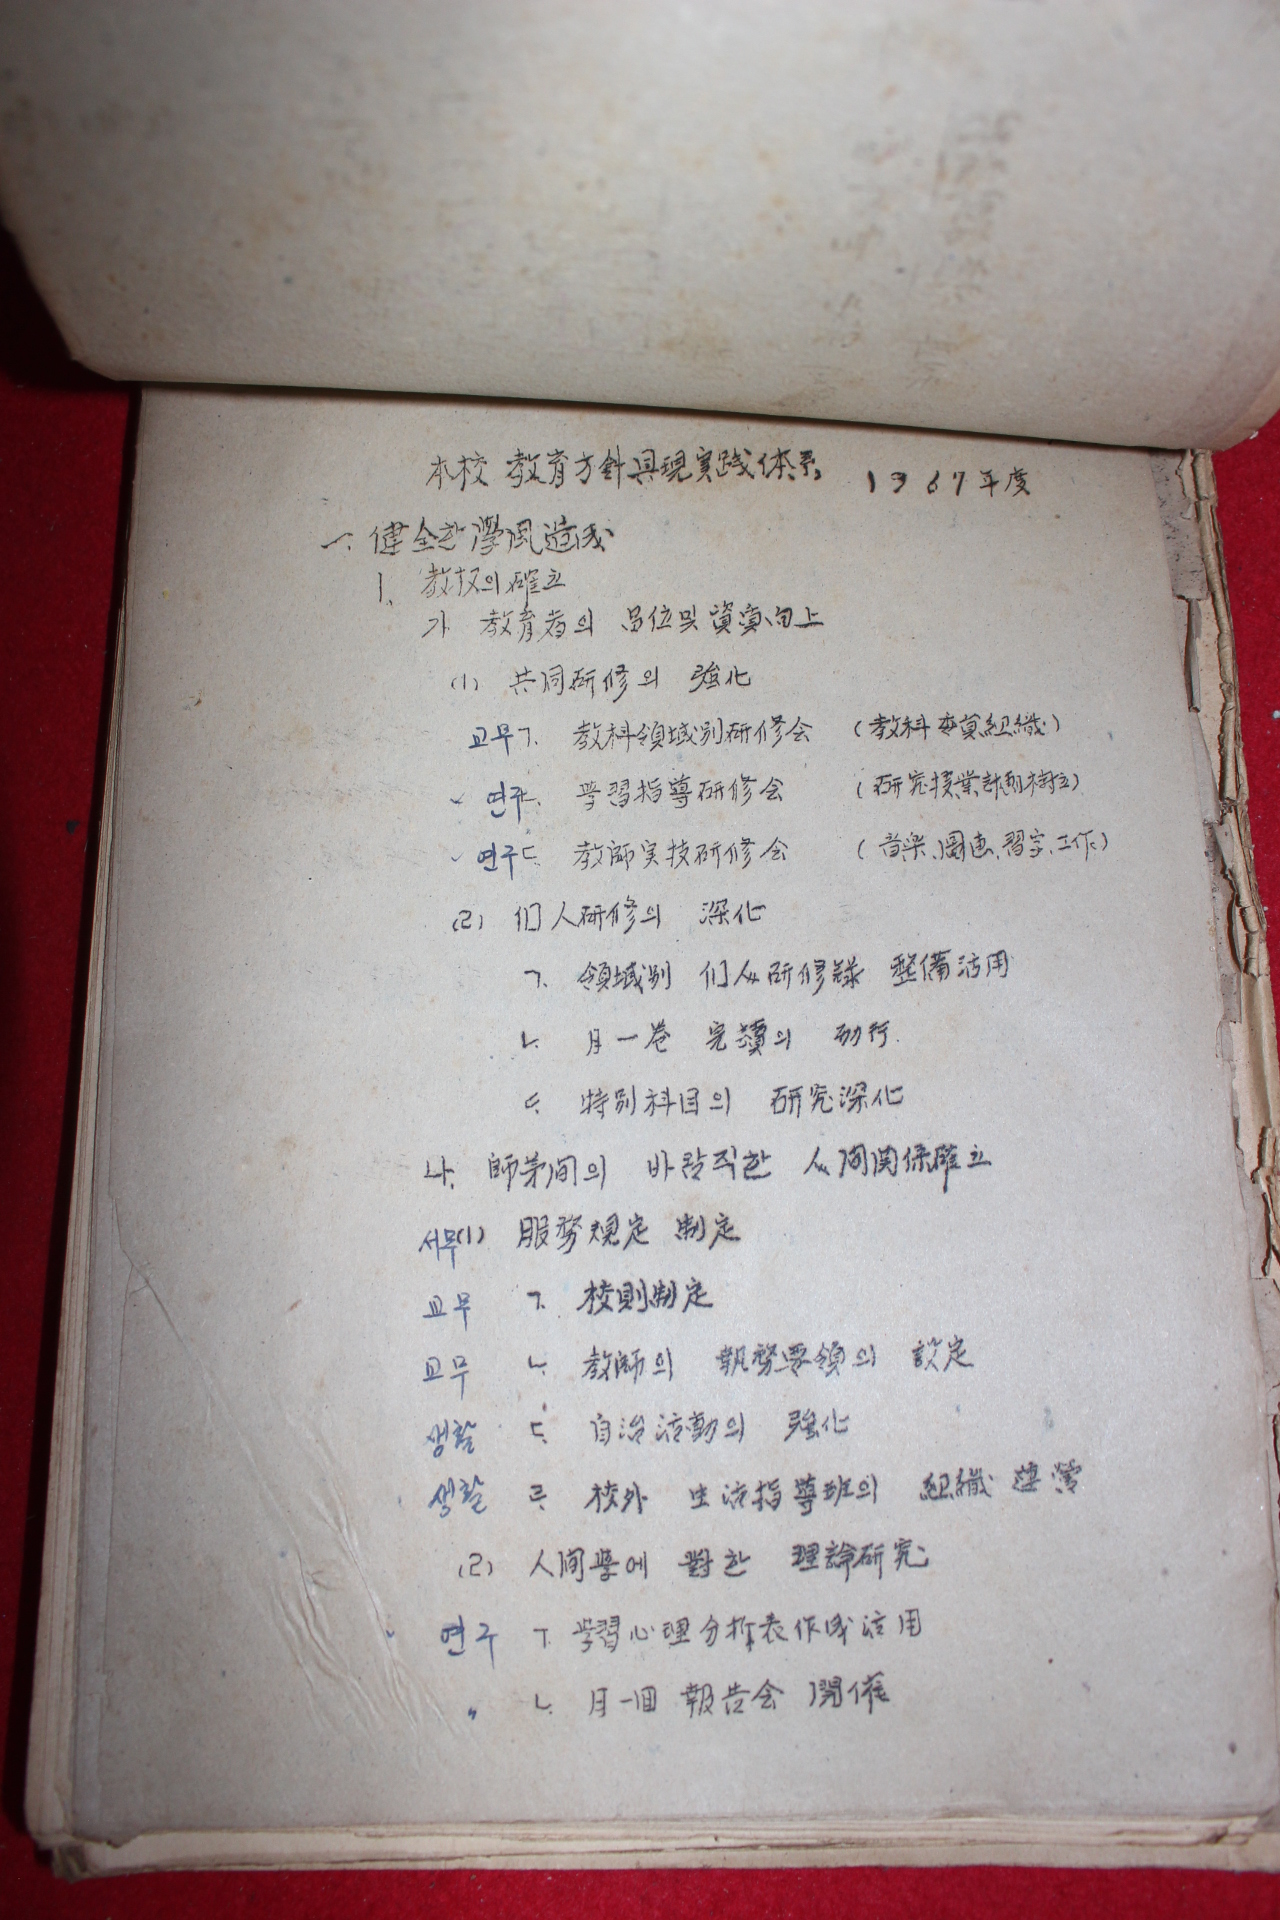 本校 教育方針具現実践体系 1967年度
一. 健全한 學風造成
1. 教权의 確立
가. 教育者의 品位및 資質向上
(1) 共同研修의 強化
교무 ㄱ. 教科領域別研修会 (教科専員組織)
연구 ㄴ. 学習指導研修会 (研究授業計画樹立)
연구 ㄷ. 教師実技研修会 (音楽、圖画、習字、工作)
(2) 们人研修의 深化
ㄱ. 領域別 们人研修録 整備活用
ㄴ. 月一巻 完讀의 励行
ㄷ. 特別科目의 研究深化
나. 師弟间의 바람직한 人间関係確立
서무 (1) 服務規定 制定
교무 ㄱ. 校則制定
교무 ㄴ. 教師의 執務要領의 設定
생활 ㄷ. 自治活動의 強化
생활 ㄹ. 校外 生活指導班의 組織 運營
(2) 人间學에 對한 理論研究
연구 ㄱ. 学習心理分析表作成活用
〃 ㄴ. 月一回 報告会 開催